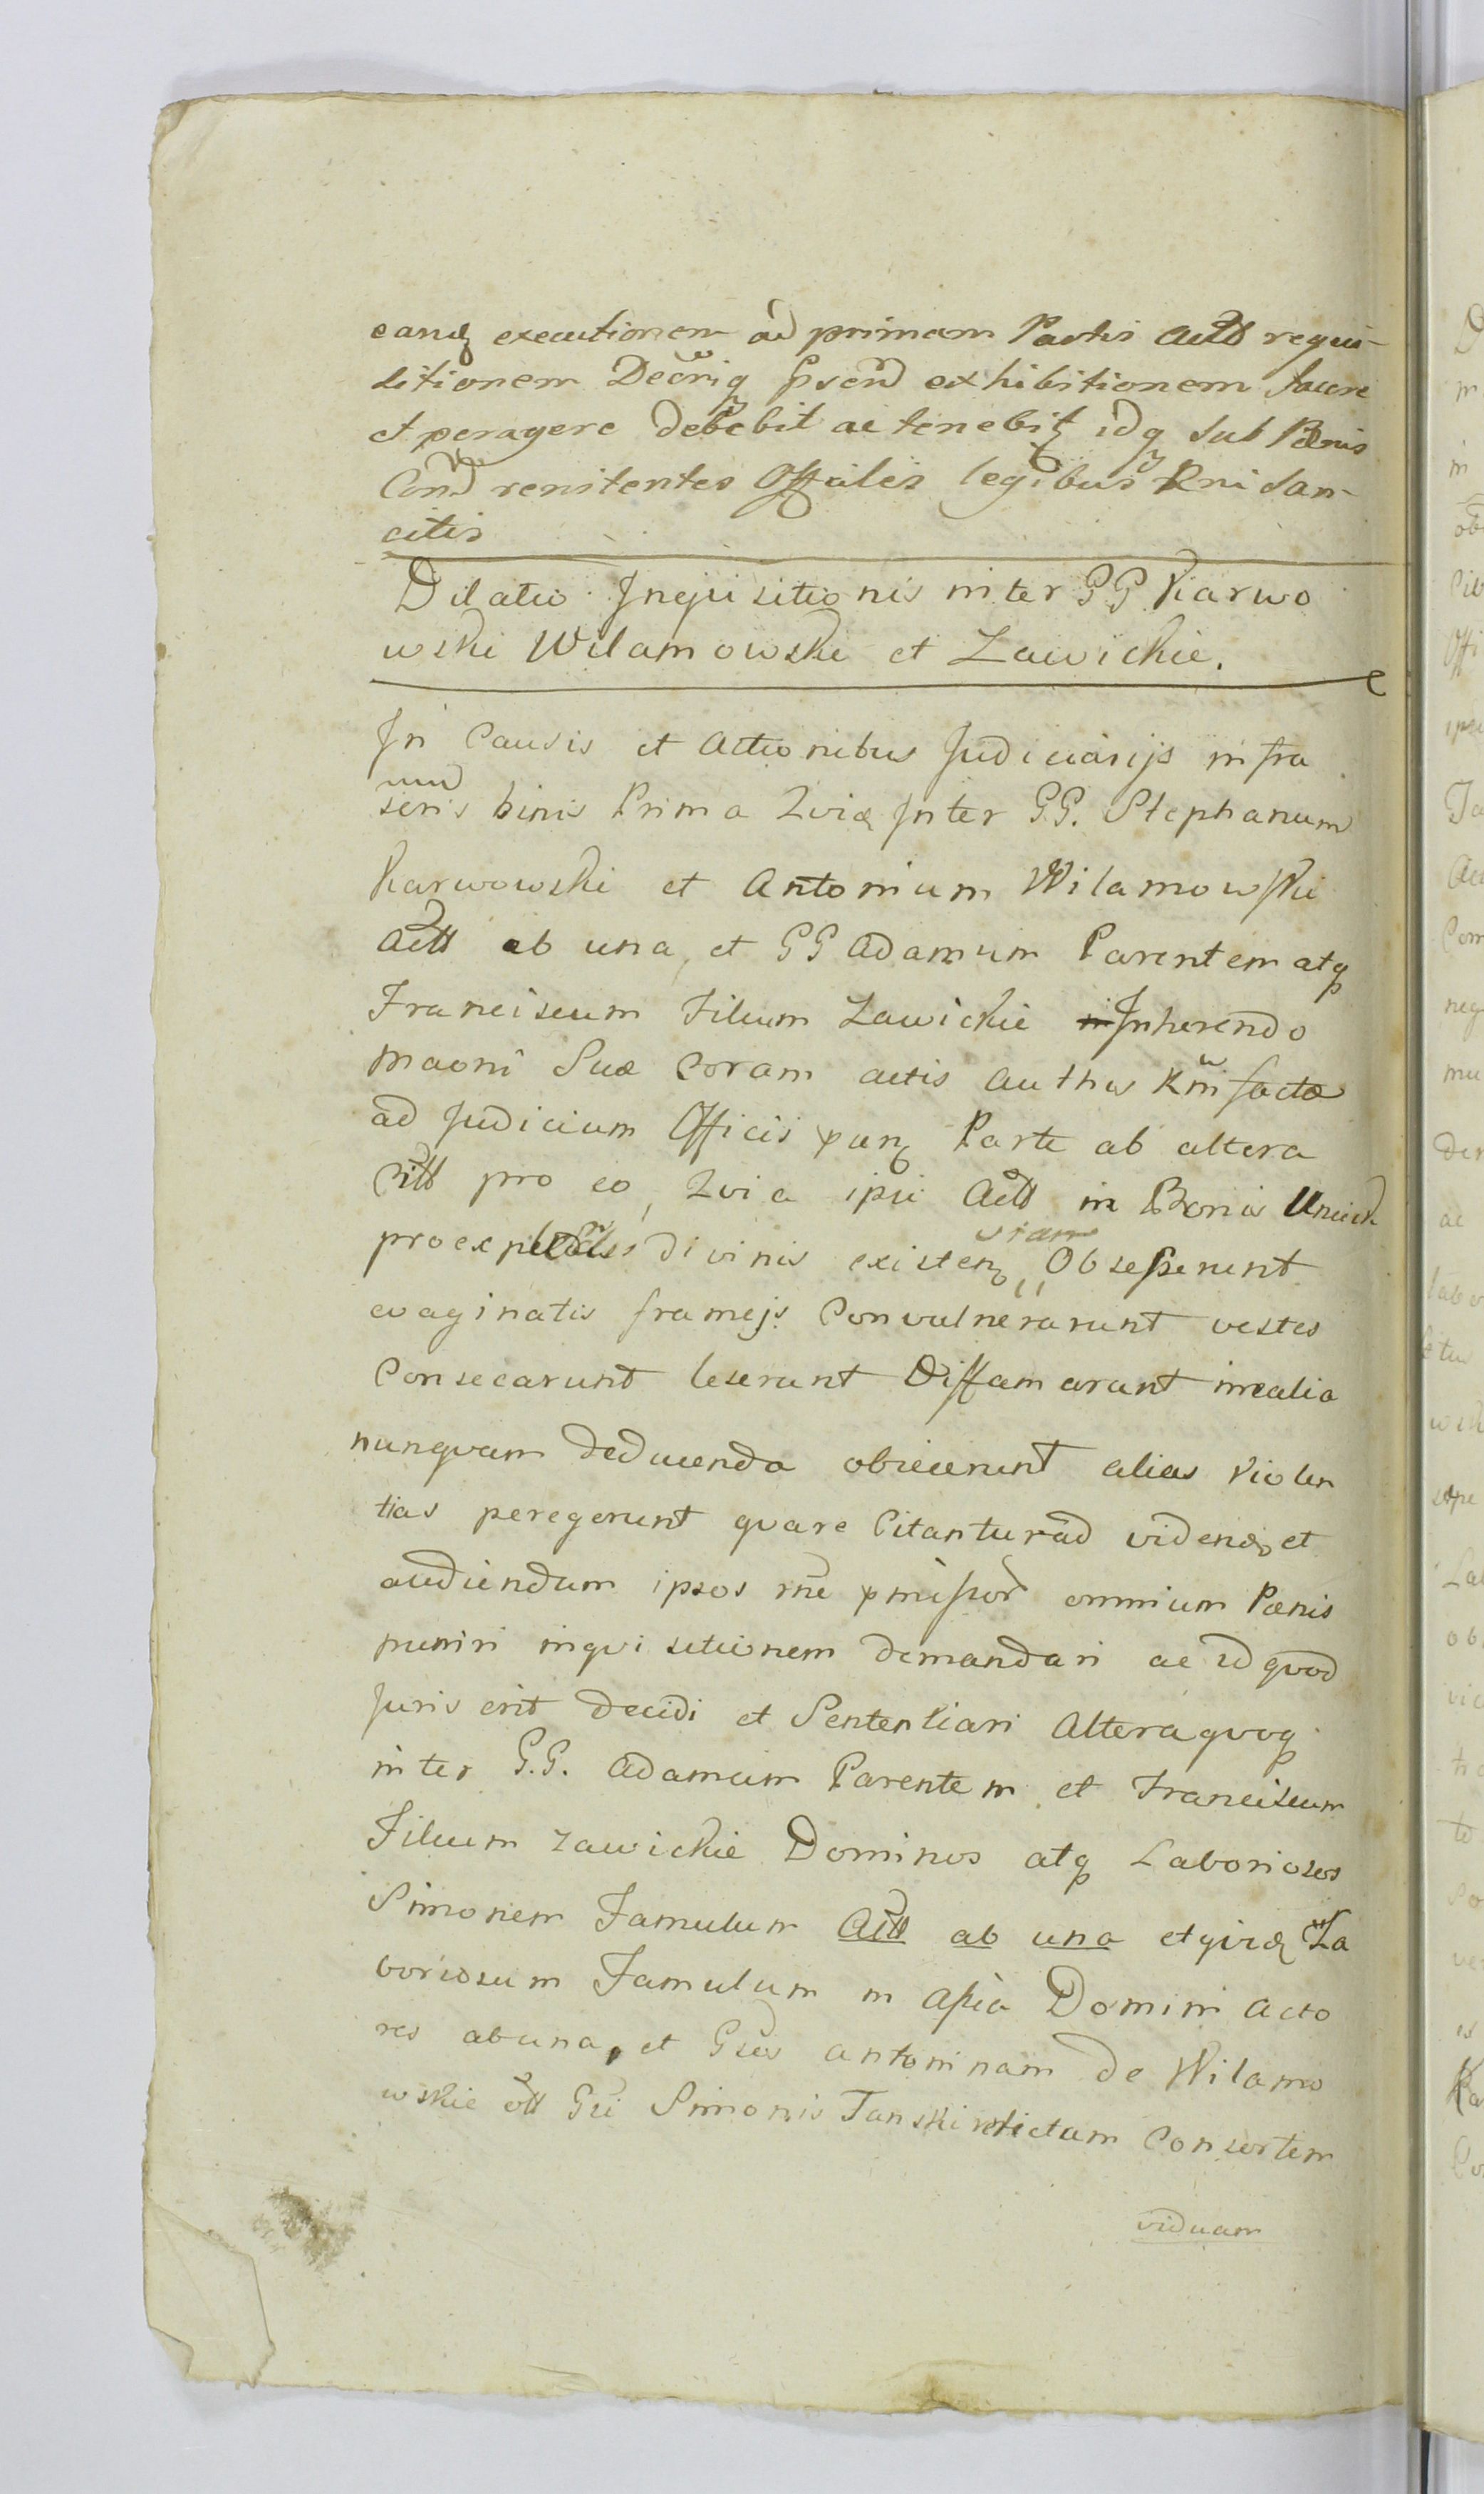 eandq executionem ad primam Partis Actt requi-
sitionem Decriq psend exhibitionem facere
et peragere debebit ac tenebit idq sub Pœnis
Cond renitentes Offciles legibus Rni San-
citis
Dilatio Inquisitionis inter GG Karwo
wski Wilamowskie et Zawickie.
In Causis et Actionibus Judiciarijs infra
scris binis Prima Quid Inter GG. Stephanum
Karwowski et Antonium Wilamowskie
Actt ab una, et GG Adamum Parentem atq
Franciscum Filium Zawickie Inherendo
maoni Suæ Coram actis authis Rm facta
ad Judicium Officis Parte ab altera
Citt pro eo, Quia ipsi Actt in Bonis
pro divinis existen, viam Obsesserunt
evaginatis framejs Convulnerarunt vestes
Consecarunt leserunt Diffamarunt inrealia
nunquam deducenda obiecerunt alias Violen
tias peregerunt quare Citantur ad videnđ et
audiendum ipsos rne pmissor omnium Pœnis
puniri inquisitionem demandari ac id quod
Juris erit decidi et Sententiari Altera quoq
inter G.G. Adamum Parentem et Franciscum
Filium Zawickie Dominos atq Laboriosos
Simonem Famulum Actt ab una et quid La
boriosum Famulum in assia Domini Acto
res ab una, et Gsos Antoninam de Wilamo
wskie ott Gsi Simonis Tanski relictam Consortem
viduam